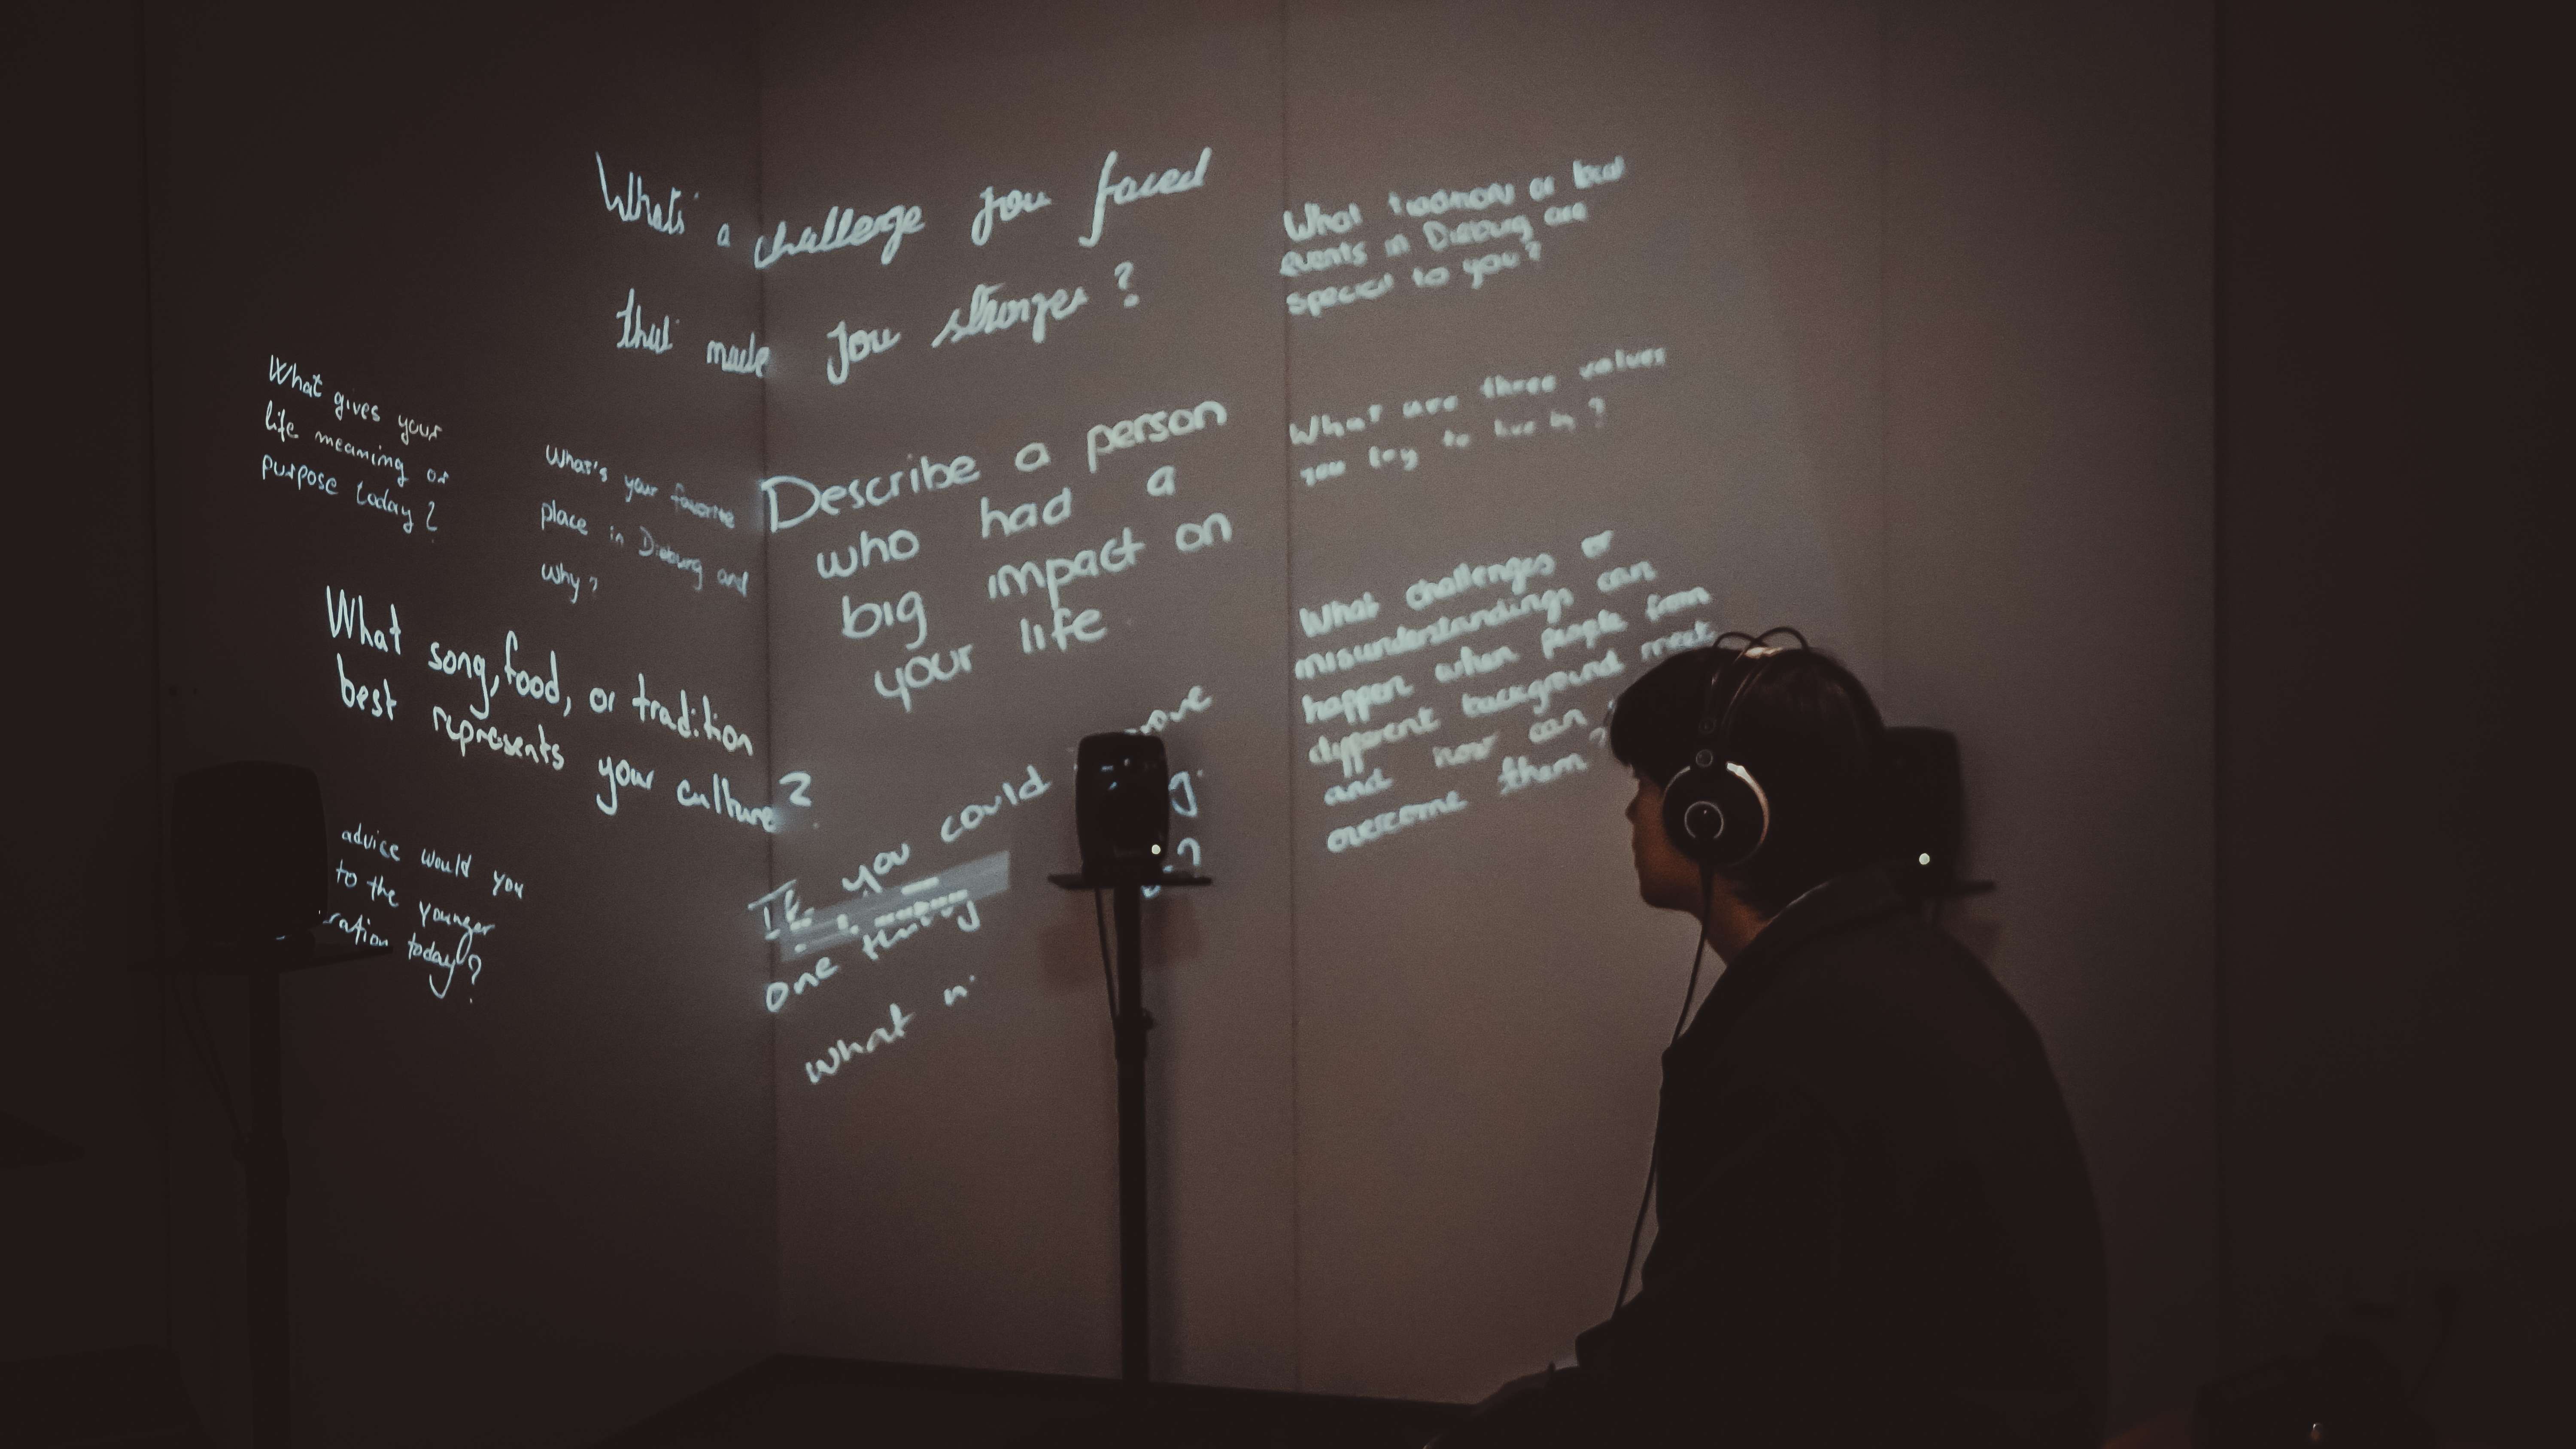 What's a challenge you faced
that made you stronger?
What gives your
life meaning or
purpose today?
What's your favorite
place in Dieburg and
why?
What song, food, or tradition
best represents your culture?
advice would you
to the younger
ration today?
Describe a person
who had a
big impact on
your life
If you could
one thing
what
What traditions or local
events in Dieburg are
special to you?
What are three values
you try to live by?
What challenges or
misunderstandings can
happen when people from
different background meet
and how can
overcome them?